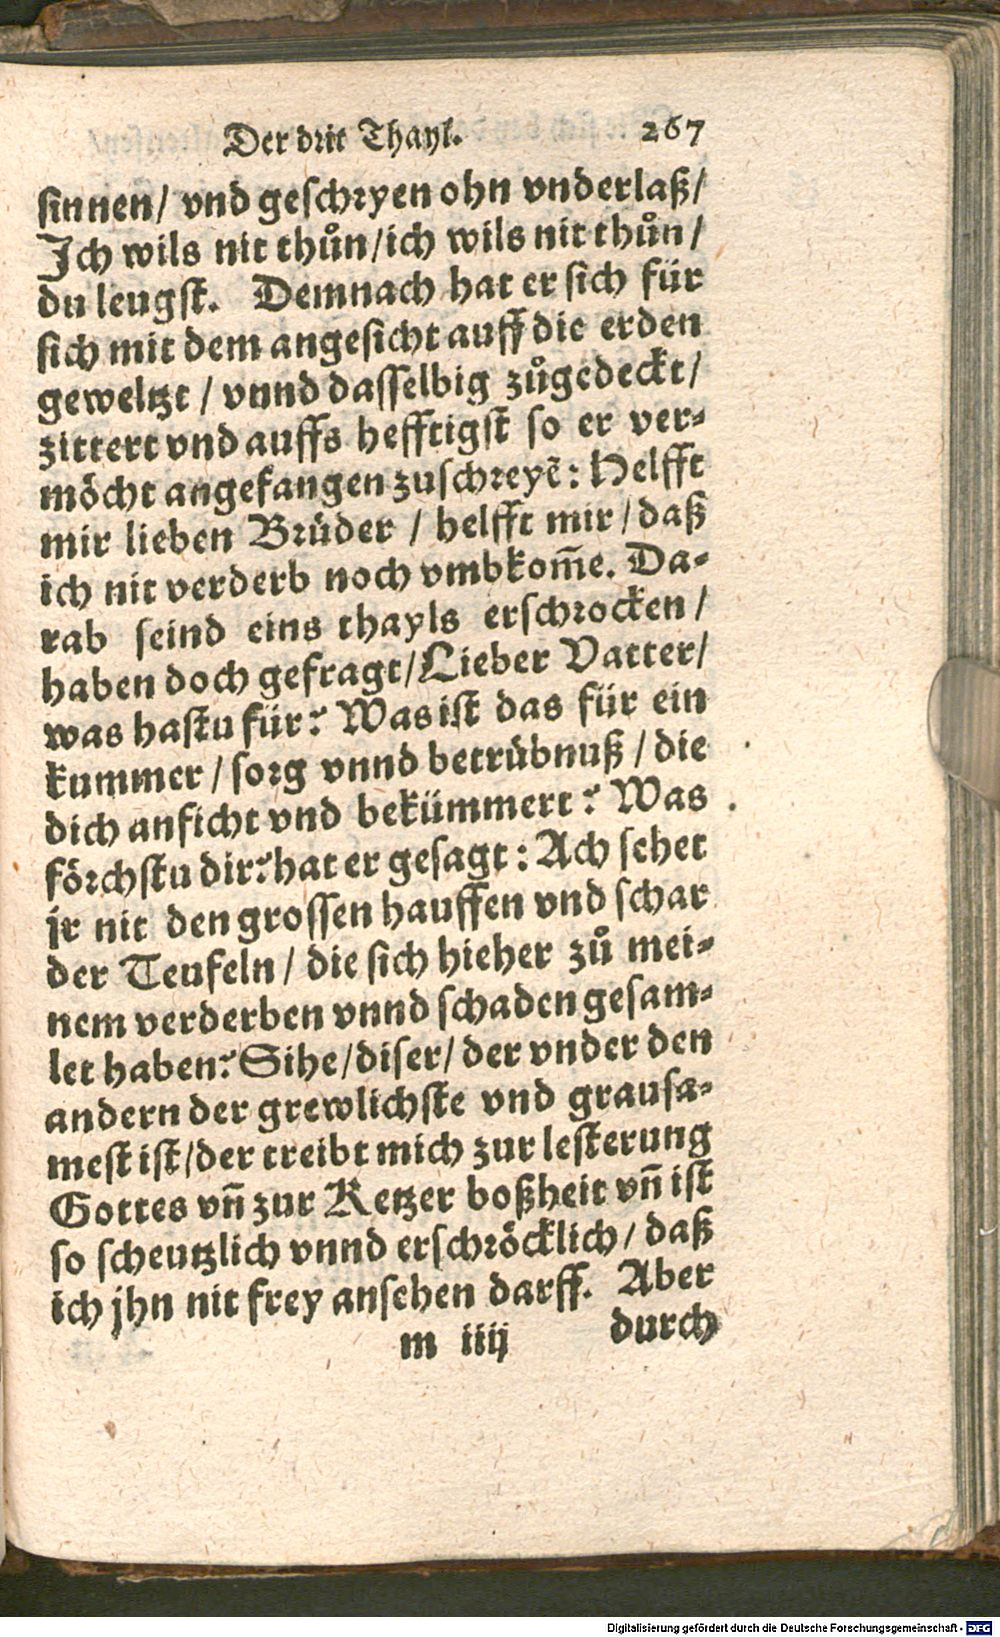 Der drit Thayl. 267
sinnen/ vnd geschryen ohn vnderlaß/
Ich wils nit thůn/ich wils nit thůn/
du leugst. Demnach hat er sich für
sich mit dem angesicht auff die erden
geweltzt / vnnd dasselbig zůgedeckt/
zittert vnd auffs hefftigst so er ver-
möcht angefangen zuschreyẽ: Helfft
mir lieben Brüder / helfft mir/ daß
ich nit verderb noch vmbkom̃e. Da-
rab seind eins thayls erschrocken /
haben doch gefragt/Lieber Vatter/
was hastu für? Was ist das für ein
kummer / sorg vnnd betrübnuß / die
dich anficht vnd bekümmert? Was
förchstu dir? hat er gesagt: Ach sehet
jr nit den grossen hauffen vnd schar
der Teufeln / die sich hieher zů mei-
nem verderben vnnd schaden gesam-
let haben? Sihe/diser/ der vnder den
andern der grewlichste vnd grausa-
mest ist/der treibt mich zur lesterung
Gottes vñ zur Ketzer boßheit vñ ist
so scheutzlich vnnd erschröcklich/ daß
ich jhn nit frey ansehen darff. Aber
m iiij durch
Digitalisierung gefördert durch die Deutsche Forschungsgemeinschaft - DFG